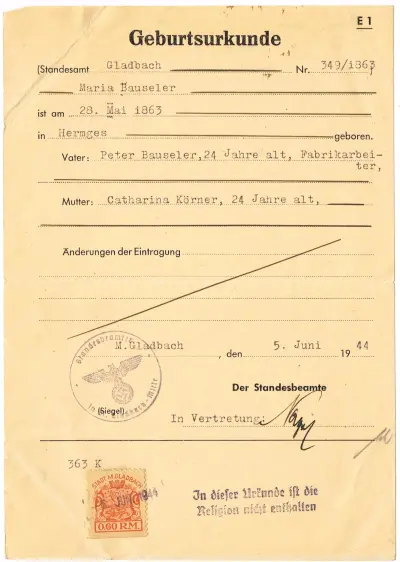 E 1
Geburtsurkunde
(Standesamt Gladbach Nr. 349/1863)
Maria Bauseler
ist am 28. Mai 1863
in Hermges geboren.
Vater: Peter Bauseler, 24 Jahre alt, Fabrikarbei-
ter,
Mutter: Catharina Körner, 24 Jahre alt,
Änderungen der Eintragung
M.Gladbach, den 5. Juni 1944
Standesbeamte
(Siegel)
Der Standesbeamte
In Vertretung:
363 K
STADT M.GLADBACH
JUNI 1944
0.60 R.M.
In dieser Urkunde ist die
Religion nicht enthalten